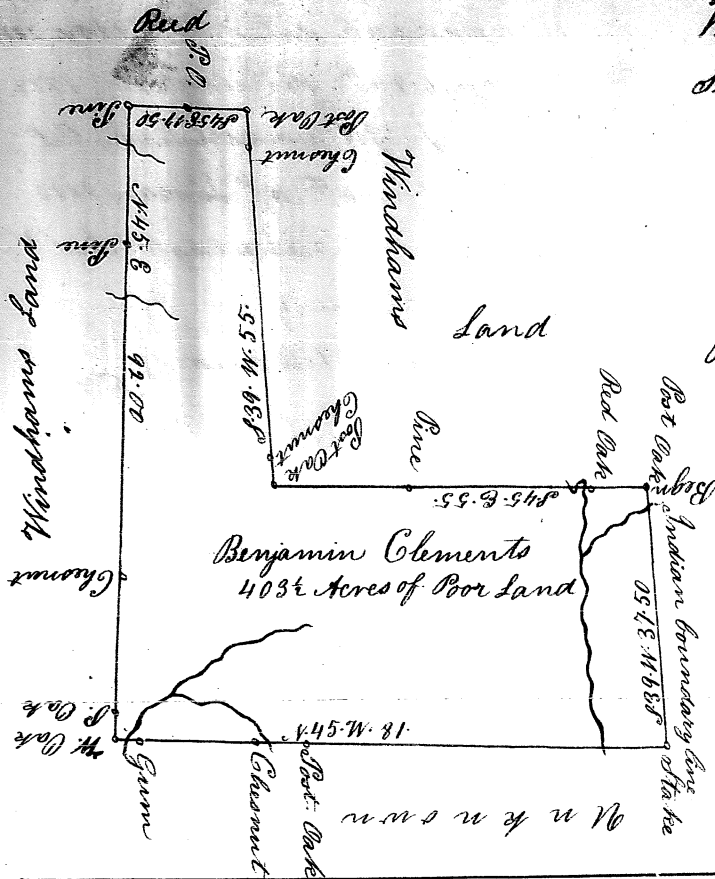 Reed
P. O.
Pine
S45E 17.50
Post Oak
Chesnut
Windhams
Land
Pine
N.45.E
92.00
Windhams Land
S39.W.55.
Post Oak
Chesnut
Pine
Red Oak
Post Oak
Begn.
S45.E.55.
Indian boundary line
S39.W.37.50
Stake
Benjamin Clements
403½ Acres of Poor Land
Chesnut
P. Oak
W. Oak
Gum
Chesnut
Post Oak
N45.W.81.
Unknown